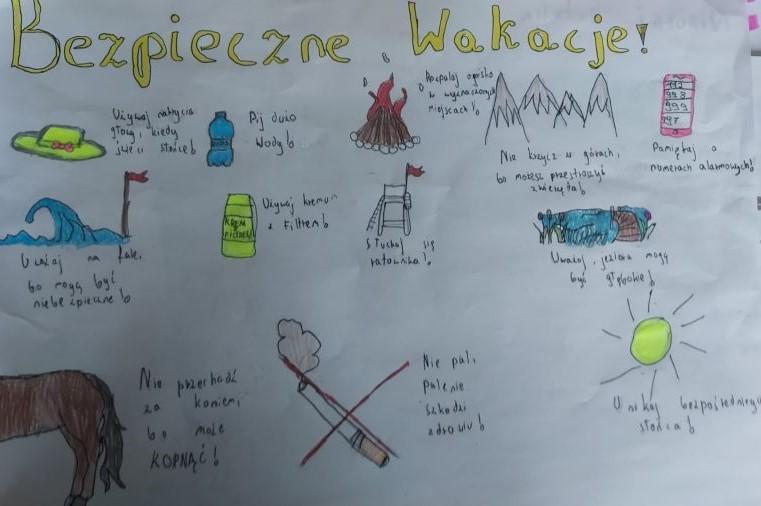 Bezpieczne Wakacje!
Używaj nakrycia
głowy, kiedy
świeci słońce!
Pij dużo
wody!
Rozpalaj ognisko
w wyznaczonych
miejscach!
Nie krzycz w górach,
bo możesz przestraszyć
zwierzęta!
112
998
999
997
Pamiętaj o
numerach alarmowych!
Uważaj na fale,
bo mogą być
niebezpieczne!
KREM
Z FILTREM
Używaj kremu
z filtrem!
Słuchaj się
ratownika!
Uważaj, jeziora mogą
być głębokie!
Nie przechodź
za koniem,
bo może
KOPNĄĆ!
Nie pal,
palenie
szkodzi
zdrowiu!
Unikaj bezpośredniego
słońca!